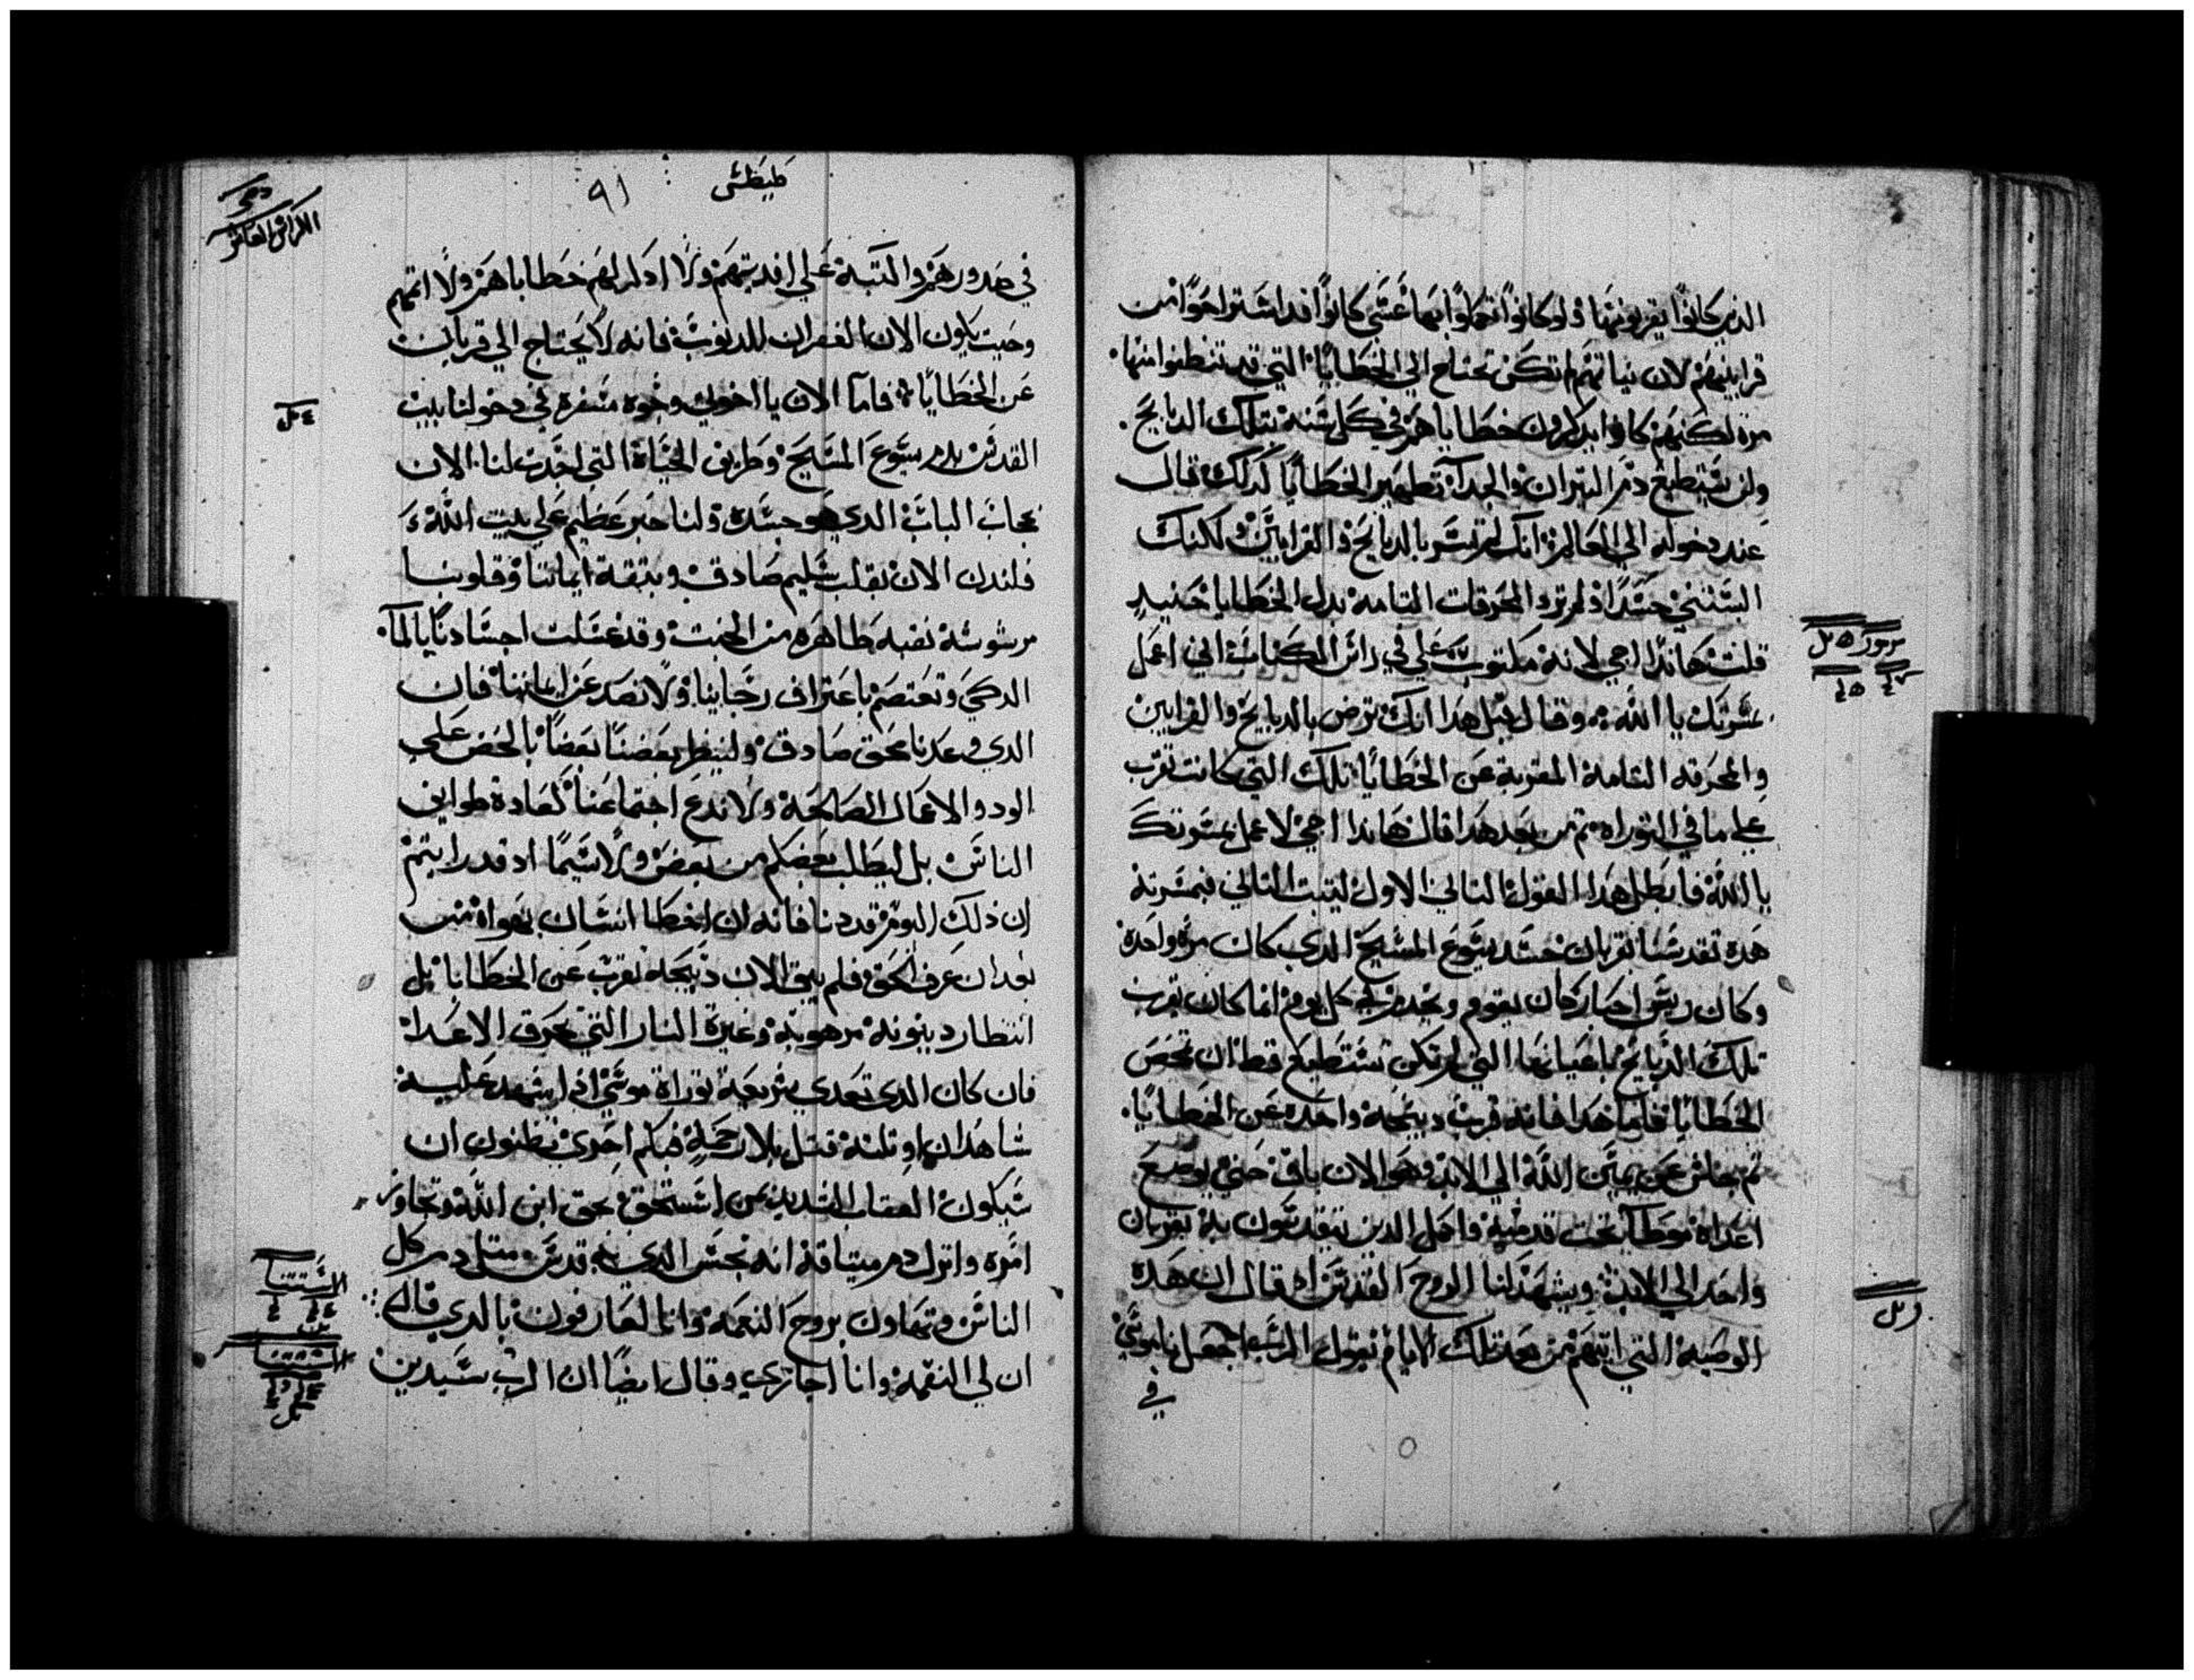 الذين كانوا يقربونها ولو كانوا اكملوا بها عسي كانوا قد استراحوا من
قرابينهم لان نياتهم لم تكن تحتاج الي الخطايا التي قد تنظفوا منها
مرة لكنهم كانوا يذكرون خطاياهم في كل سنة بتلك الدبايح
ولن يستطيع دم التيران والجدآ تطهير الخطايا كدلك قال
عند دخوله الي العالم انك لم تسر بالدبايح والقرابين ولكنك
البستني جسدًا ولم ترد المحرقات التامة بدل الخطايا حنيدٍ
قلت هاندا اجي لانه مكتوب علي في راس الكتاب اني اعمل
مسرتك يا الله وقال قبل هدا انك لم ترض بالدبايح والقرابين
والمحرقه التامة المقربة عن الخطايا تلك التي كانت تقرب
علي ما في التوراه تم من بعد هدا قال هاندا اجي لاعمل مسرتك
يا الله فابطل هدا القول التاني الاول ليتبت التاني فبمسرته
هده تقدسنا بقربان جسد يسوع المسيح الدي كان مرة واحدة
وكان ريس احبار كان يقوم ويخدم في كل يوم انما كان يقرب
تلك الدبايح باعيانها التي لم تكن تستطيع قط ان تمحص
الخطايا فاما هدا فانه قرب دبيحة واحده عن الخطايا
تم جلس عن يمين الله الي الابد وهو الان باق حتي يوضع
اعداه موطآ تحت قدميه واكمل الدين يتقدسون به بقربان
واحد الي الابد ويشهد لنا الروح القدس اد قال ان هده
الوصية التي اتيهم من بعد تلك الايام يقول الرب اجعل ناموسي
في
مزمور
طيطس
٩١
الكراس العاشر
في صدورهم واكتبه علي افديتهم ولا ادكر لهم خطاياهم ولا اتمهم
وحيت يكون الان الغفران للدنوب فانه لا يحتاج الي قربان
عن الخطايا فاما الان يا اخوتي وجوه مسفرة في دخولنا بيت
القدس بدم يسوع المسيح وطريق الحياة التي اجدت لنا الان
بحجاب الباب الدي هو جسده ولنا حبر عظيم علي بيت الله
فلندن الان بقلب سليم صادق وبتقة ايماننا وقلوبنا
مرشوشة نقيه طاهره من الخبت وقد غسلت اجسادنا بالمآ
الدكي ونعتصم باعتراف رجاينا ولا نصد عن ايماننا فان
الدي وعدنا محق صادق ولينظر بعضنا بعضًا بالحض علي
الود والاعمال الصالحة ولا ندع اجتماعنا كعادة طوايف
الناس بل ليطلب بعضكم من بعض ولا سيما اد قد رايتم
ان ذلك اليوم قد دنا فانه ان اخطا انسان بهواه من
بعد ان عرف الحق فلم يبق الان دبيحه تقرب عن الخطايا بل
انتظار دينونة مرهوبة وغيرة النار التي تحرق الاعدا
فان كان الدي تعدي شريعة توراة موسي اذا شهد عليه
شاهدان او تلتة قتل بلا رحمة فبكم احري تظنون ان
سيكون العقاب الشديد من استخف بحق ابن الله وتجاوز
امره وانزل دم ميتاقه انه نجس الدي به قدس متل دم كل
الناس وتهاون بروح النعمة وانا لعارفون بالدي قال
ان لي النقمة وانا اجازي وقال ايضًا ان الرب سيدين